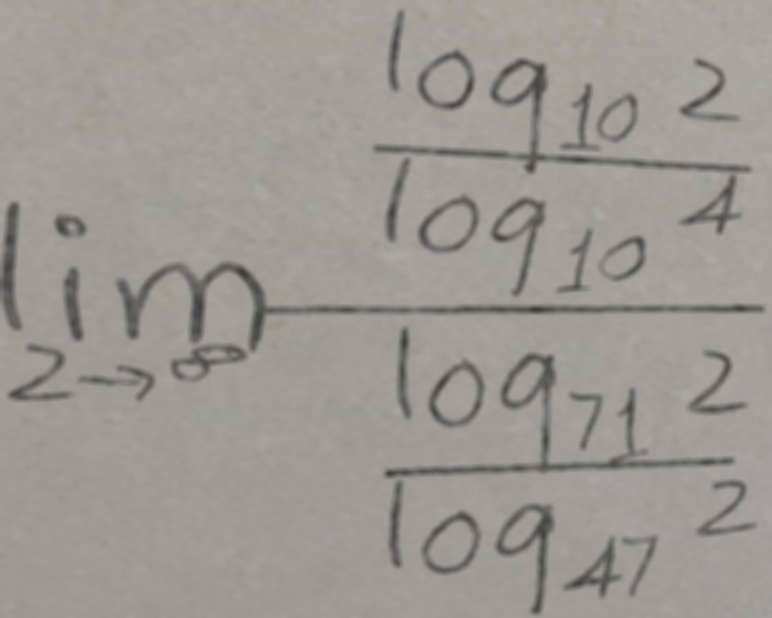 \lim_{2 \to \infty} \frac{\frac{\log_{10} 2}{\log_{10} 4}}{\frac{\log_{71} 2}{\log_{47} 2}}